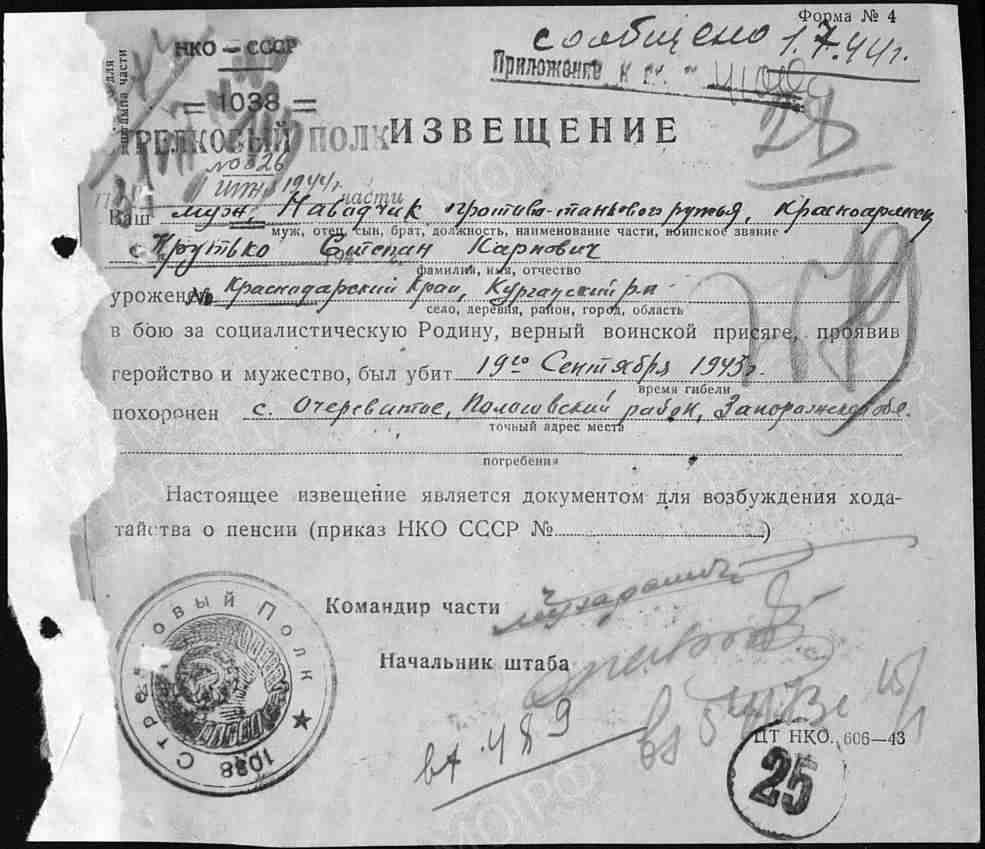 Форма № 4
сообщено 1.7.44г.
для
штампа части
НКО — СССР
Приложение к
= 1038 =
СТРЕЛКОВЫЙ ПОЛК
ИЗВЕЩЕНИЕ
28
№ 326
1944г.
части
Ваш муж, Наводчик противо-танкового ружья, Красноармеец
муж, отец, сын, брат, должность, наименование части, воинское звание
Крутько Степан Карпович
фамилия, имя, отчество
уроженец Краснодарский Край, Курганский р-н
село, деревня, район, город, область
в бою за социалистическую Родину, верный воинской присяге, проявив
геройство и мужество, был убит 19го Сентября 1943г.
время гибели
похоронен с. Очереватое, Пологовский район, Запорожской обл.
точный адрес места
погребения
Настоящее извещение является документом для возбуждения хода-
тайства о пенсии (приказ НКО СССР №)
Командир части
Начальник штаба
1038 Стрелковый Полк
вх. 489
ЦТ НКО. 606—43
25